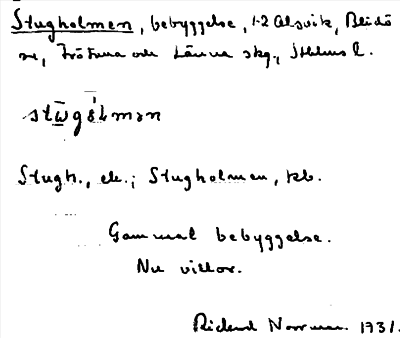 Stugholmen, bebyggelse, 1-2 Alsvik, Blidö
sn, Frötuna och Länna skg., Sthlms l.
stu̅gɷ́lmən
Stugh., ek.; Stugholmen, kb.
Gammal bebyggelse.
Nu villor.
Rickard Norrman 1931.